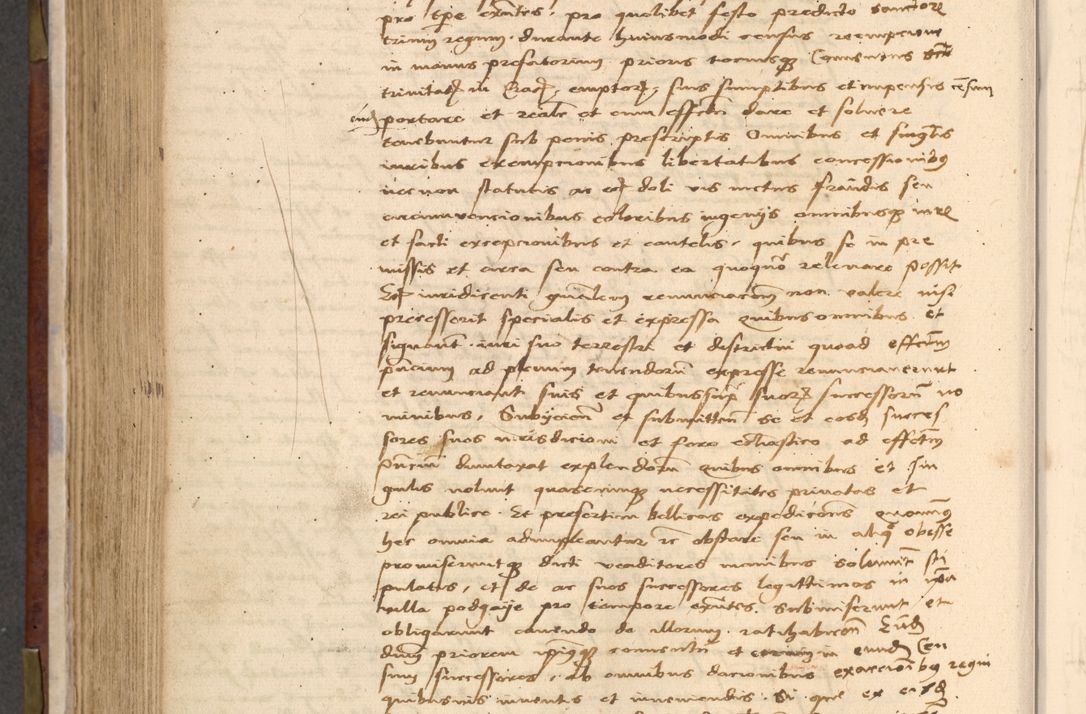 pro tpe exntes, pro quolibet festo predicto sanctore
trium regum durante huiusmodi census reempcione
in manus prefatorum prioris tociusq Conuentus scte
trinitatis in Crac, emptor, suis sumptibus et impensis censum
eund portare et reale et cum effectu dare et soluere
tenebuntur sub penis prescriptis Omnibus et singlis
iuribus exempcionibus libertatibus concessionibus
necnon statutis ac doli vis metus fraudis seu
circumuencionibus coloribus ingenijs omnibusq iure
et facti excepcionibus et cautelis, quibus se in pre
missis et circa seu contra ea quoquo releuare possit
iuridicenti gnalem renunciacoem non valere nisi
precesserit specialis et expressa Quibus omnibus et
signant iuri suo terrestri et districtui quoad effectum
pncium ad plenum tenendorum expresse renunciauerunt
et renunciant suis et quibussup suor successorum no
minibus, Subijcien et submitten se et eosd succes
sores suos iurisdicioni et foro ecliastico ad effectum
pncium dumtaxat explendorum Quibus omnibus et sin
gulis voluit quascunq necessitates priuatas et
rei publice Et presertim bellicas expediconis quominus
hec omnia adimpleantur obstare seu in aliquo obesse
promiseruntq dicti venditores manibus solemnit sti
pulatis, et de ac suos successores legittimos in ipsa
villa podgaije pro tempore exntes submiserunt et
obligarunt cauendo de illorum ratihabicon
dnm priorem ipsiusq conuentu et eorum in eiusd Con
suum successores, ab omnibus dacionibus exaccionibus regni
quibusuis inuentis et inueniendis Si que ex